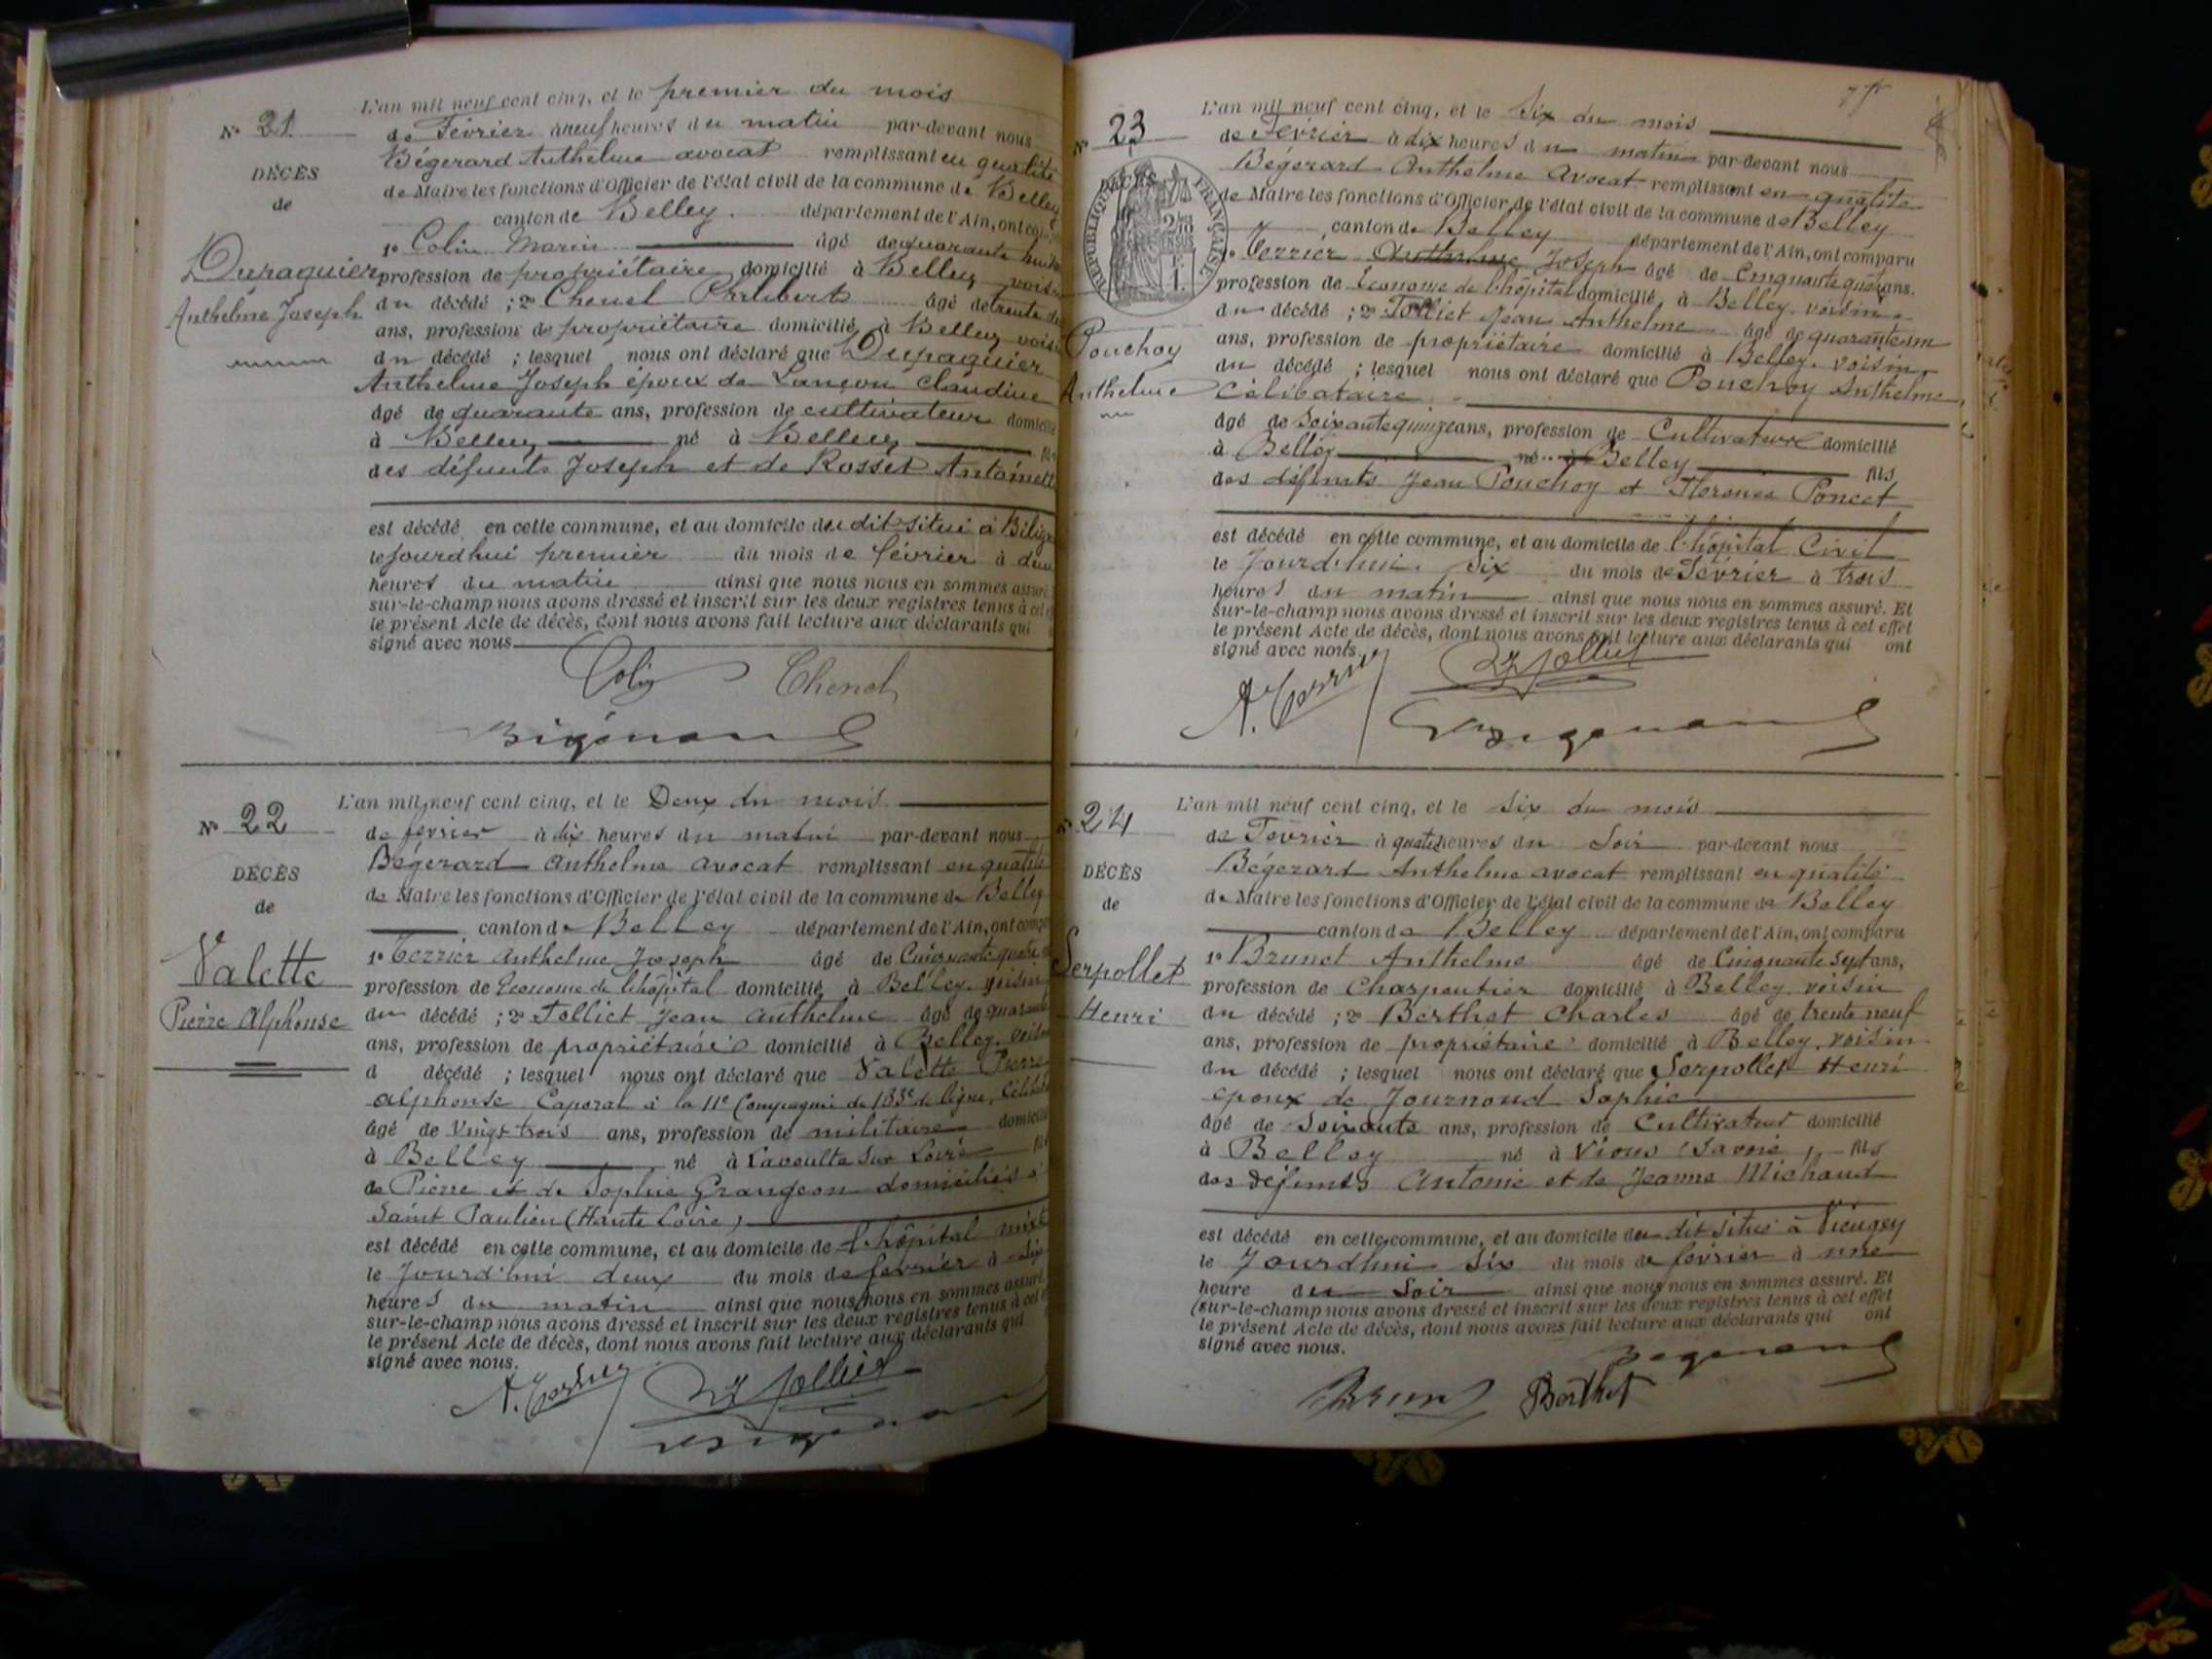 N° 21
DÉCÈS
de
Dupaquier
Anthelme Joseph
L'an mil neuf cent cinq, et le premier du mois
de Février à neuf heures du matin par-devant nous
Bégerard Anthelme avocat remplissant en qualité
de Maire les fonctions d'Officier de l'état civil de la commune de Belley
canton de Belley département de l'Ain, ont
1° Colin Marin âgé de quarante huit
profession de propriétaire domicilié à Belley voisin
du décédé ; 2° Chenel Philibert âgé de trente
ans, profession de propriétaire domicilié à Belley voisin
du décédé ; lesquel nous ont déclaré que Dupaquier
Anthelme Joseph époux de Lançon Claudine
âgé de quarante ans, profession de cultivateur domicilié
à Belley né à Belley fils
des défunts Joseph et de Rosset Antoinette
est décédé en cette commune, et au domicile du dit situé à
le jourdhui premier du mois de février à deux
heures du matin ainsi que nous nous en sommes assuré
sur-le-champ nous avons dressé et inscrit sur les deux registres tenus à cet
le présent Acte de décès, dont nous avons fait lecture aux déclarants qui
signé avec nous
Colin Chenel
Bégerard
N° 22
DÉCÈS
de
Valette
Pierre Alphonse
L'an mil neuf cent cinq, et le Deux du mois
de février à dix heures du matin par-devant nous
Bégerard Anthelme avocat remplissant en qualité
de Maire les fonctions d'Officier de l'état civil de la commune de Belley
canton de Belley département de l'Ain, ont
1° Terrier Anthelme Joseph âgé de Cinquante quatre
profession de Econome de l'hôpital domicilié à Belley voisin
du décédé ; 2° Tolliet Jean Anthelme âgé de quarante
ans, profession de propriétaire domicilié à Belley, voisin
d décédé ; lesquel nous ont déclaré que Valette Pierre
alphonse Caporal à la 11e Compagnie du 133e de ligne, Célibataire
âgé de Vingt trois ans, profession de militaire domicilié
à Belley né à Lavoulte Sur Loire fils
de Pierre et de Sophie Grangeon domiciliés à
Saint Paulien (Haute Loire)
est décédé en cette commune, et au domicile de l'hôpital mixte
le Jourd'hui deux du mois de février à six
heures du matin ainsi que nous nous en sommes assuré
sur-le-champ nous avons dressé et inscrit sur les deux registres tenus à cet
le présent Acte de décès, dont nous avons fait lecture aux déclarants qui
signé avec nous.
A. Terrier Tolliet
Bégerard
N° 23
DÉCÈS
RÉPUBLIQUE FRANÇAISE
Pouchoy
Anthelme
L'an mil neuf cent cinq, et le Six du mois
de Février à dix heures du matin par-devant nous
Bégerard Anthelme Avocat remplissant en qualité
de Maire les fonctions d'Officier de l'état civil de la commune de Belley
canton de Belley département de l'Ain, ont comparu
1° Terrier Anthelme Joseph âgé de Cinquante quatre ans.
profession de Econome de l'hôpital domicilié, à Belley voisin
du décédé ; 2° Tolliet Jean Anthelme âgé de quarante un
ans, profession de propriétaire domicilié à Belley. voisin
du décédé ; lesquel nous ont déclaré que Pouchoy Anthelme,
Célibataire
âgé de Soixante quinze ans, profession de Cultivateur domicilié
à Belley né à Belley fils
des défunts Jean Pouchoy et Florence Poncet
est décédé en cette commune, et au domicile de l'hôpital Civil
le Jourd'hui Six du mois de Février à trois
heures du matin ainsi que nous nous en sommes assuré. Et
sur-le-champ nous avons dressé et inscrit sur les deux registres tenus à cet effet
le présent Acte de décès, dont nous avons fait lecture aux déclarants qui ont
signé avec nous.
A. Terrier Tolliet
Bégerard
N° 24
DÉCÈS
de
Serpollet
Henri
L'an mil neuf cent cinq, et le Six du mois
de Février à quatre heures du Soir par-devant nous
Bégerard Anthelme avocat remplissant en qualité
de Maire les fonctions d'Officier de l'état civil de la commune de Belley
canton de Belley département de l'Ain, ont comparu
1° Brunet Anthelme âgé de Cinquante Sept ans,
profession de Charpentier domicilié à Belley voisin
du décédé ; 2° Berthet Charles âgé de trente neuf
ans, profession de propriétaire domicilié à Belley, voisin
du décédé ; lesquel nous ont déclaré que Serpollet Henri
époux de Journoud Sophie
âgé de Soixante ans, profession de Cultivateur domicilié
à Belley né à Vions (Savoie) fils
des Défunts Antoine et de Jeanne Michaud
est décédé en cette commune, et au domicile du dit situé à Vieugey
le Jourdhui Six du mois de février à une
heure du Soir ainsi que nous nous en sommes assuré. Et
sur-le-champ nous avons dressé et inscrit sur les deux registres tenus à cet effet
le présent Acte de décès, dont nous avons fait lecture aux déclarants qui ont
signé avec nous.
Bégerard
Brunet Berthet